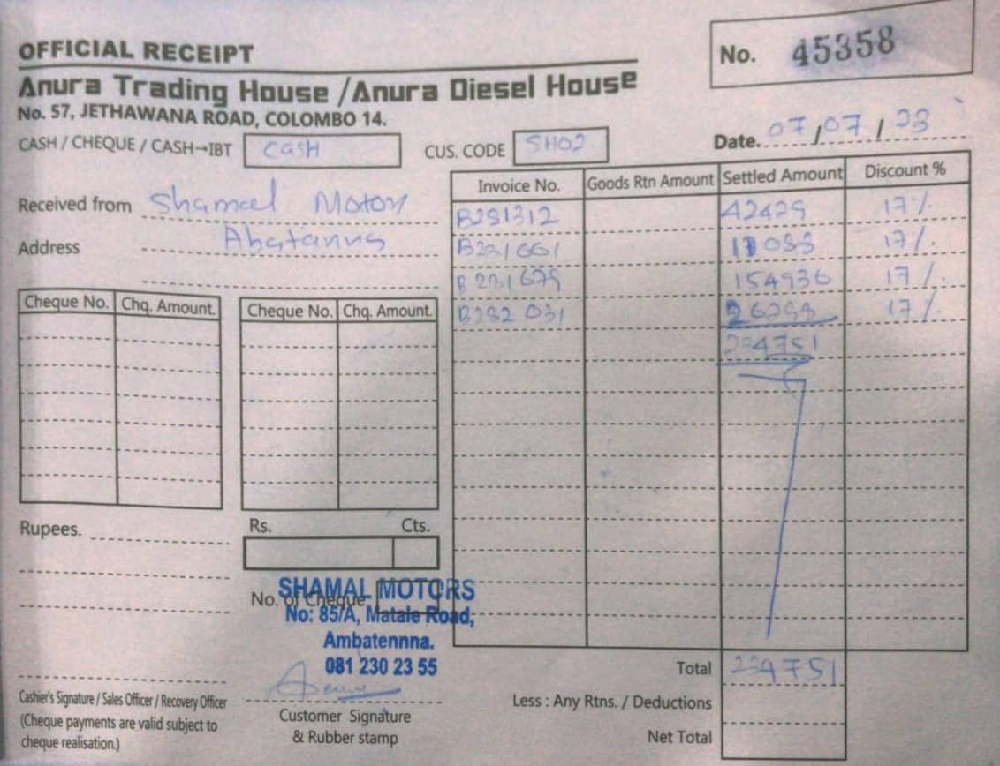 OFFICIAL RECEIPT
No. 45358
Anura Trading House / Anura Diesel House
No. 57, JETHAWANA ROAD, COLOMBO 14.
CASH / CHEQUE / CASH→IBT cash
CUS. CODE SH02
Date. 07 / 07 / 23
Received from Shamal Motors
Address
Invoice No. Goods Rtn Amount Settled Amount Discount %
B231312 42429 17%.
B231661 11088 17%.
B231679 154936 17%.
B232031 26298 17%.
234751
Cheque No. Chq. Amount. Cheque No. Chq. Amount.
Rupees.
Rs. Cts.
No. of Cheque
SHAMAL MOTORS
No: 85/A, Matale Road,
Ambatennna.
081 230 23 55
Cashier's Signature / Sales Officer / Recovery Officer
(Cheque payments are valid subject to
cheque realisation.)
Customer Signature
& Rubber stamp
Total 234751
Less : Any Rtns. / Deductions
Net Total